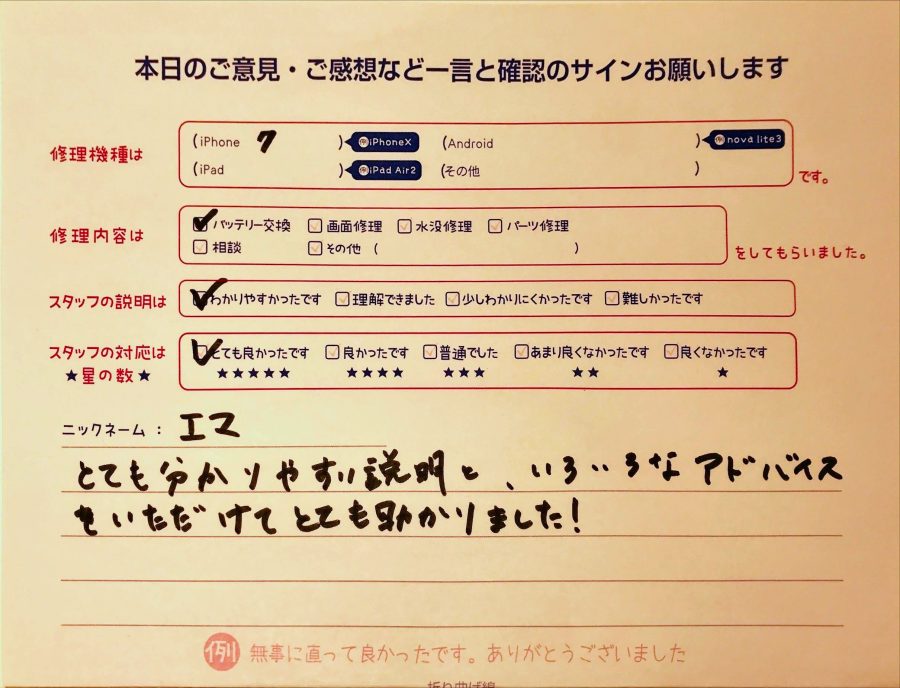 本日のご意見・ご感想など一言と確認のサインお願いします
修理機種は (iPhone 7 ) 例 iPhoneX (Android ) 例 nova lite3
(iPad ) 例 iPad Air2 (その他 ) です。
修理内容は バッテリー交換 画面修理 水没修理 パーツ修理
相談 その他 ( ) をしてもらいました。
スタッフの説明は わかりやすかったです 理解できました 少しわかりにくかったです 難しかったです
スタッフの対応は とても良かったです 良かったです 普通でした あまり良くなかったです 良くなかったです
★星の数★ ★★★★★ ★★★★ ★★★ ★★ ★
ニックネーム： エマ
とても分かりやすい説明と、いろいろなアドバイス
をいただけてとても助かりました!
例 無事に直って良かったです。ありがとうございました
折り曲げ線